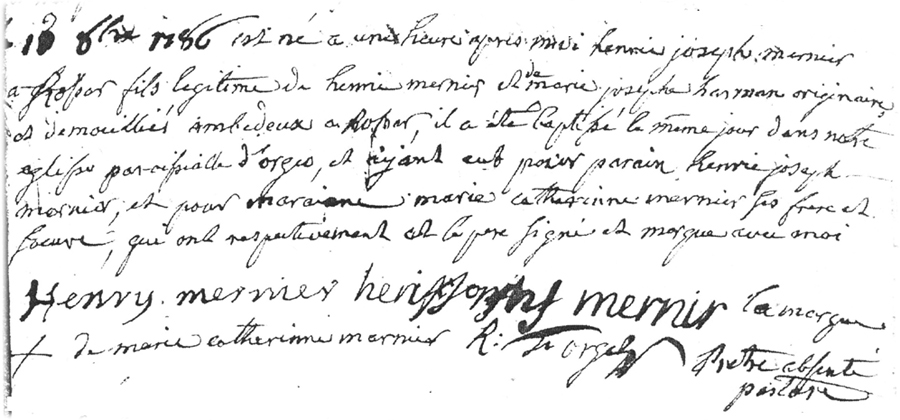 18 8bre 1786 est né a une heure apres midi henrie joseph mernier
a Rossar fils legitime de henrie mernier et de marie joseph harman originaires
et demeuillies ambedeux a Rossar, il a été baptisé le meme jour dans notre
eglisse paroissialle d'orgeo, et ayant eut pour parain henrie joseph
mernier, et pour maraine marie catherinne mernier ses frere et
soeure, que ont respectivement et le pere signé et morque avec moi
Henry mernier mernir la marque
+ de marie catherinne mernier R: Pretre absente
pastore